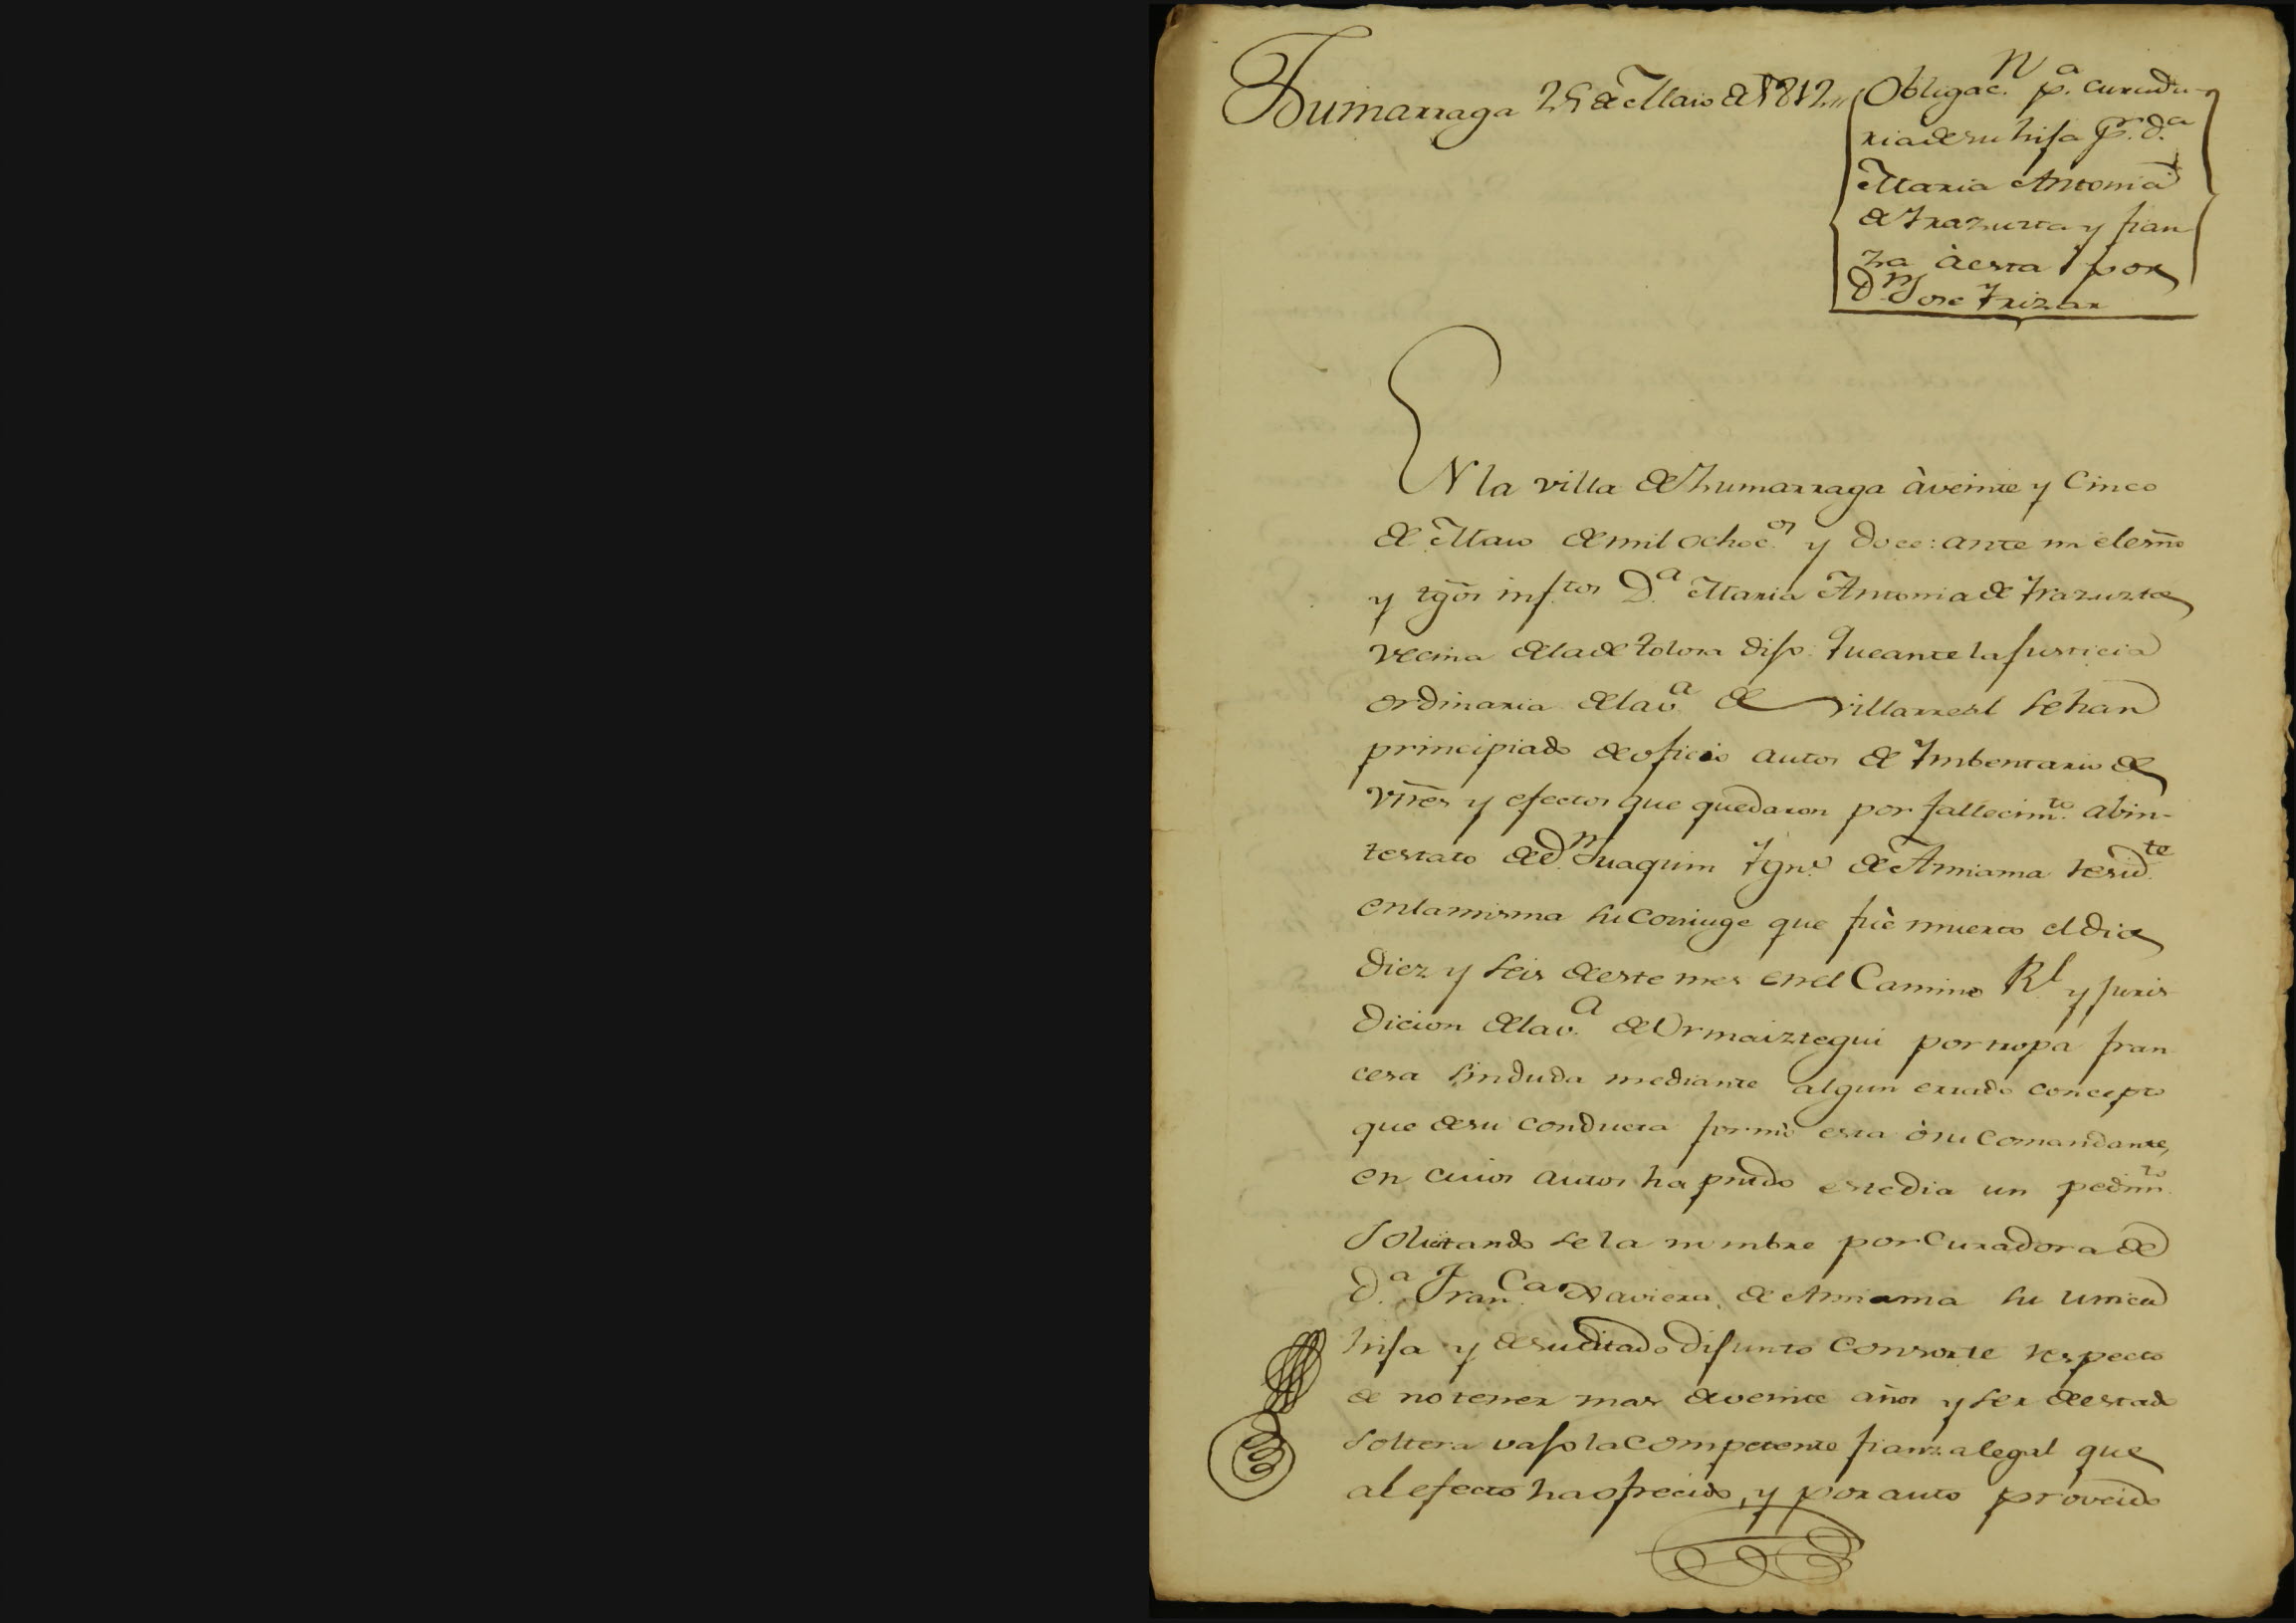 Zumarraga 25 de Maio de 1812,,
Obligac.n p.a curadu-
ria de su hija p.r d.a
Maria Antonia
de Yrazusta y fian
za à esta por
D.n Jose Yrizar
EN la villa de Zumarraga à veinte y Cinco
de Maio de mil ochoc.os y doce: ante mi el esño
y tgõs inf.tos D.a Maria Antonia de Yrazusta
vecina de la de Tolosa dijo: Que ante la Justicia
ordinaria de la v.a de Villarreal se han
principiado de oficio autos de Ymbentario de
vñes y efectos que quedaron por fallecim.to abin-
testato de D.n Juaquin Ygn.o de Amiama resid.te
en la misma su coniuge que fuè muerto el dia
diez y seis de este mes en el Camino R.l y juris
dicion de la v.a de Ormaiztegui por tropa fran
cesa sin duda mediante algun errado concepto
que de su conducta formò esta ò su Comandante,
en cuios autos ha pñtdo este dia un pedim.to
solicitando se la nombre por Curadora de
D.a Fran.ca Xaviera de Amiama su unica
hija y de su citado difunto Consorte respecto
de no tener mas de veinte años y ser de estado
soltera vajo la competente fianza legal que
al efecto ha ofrecido, y por auto proveido